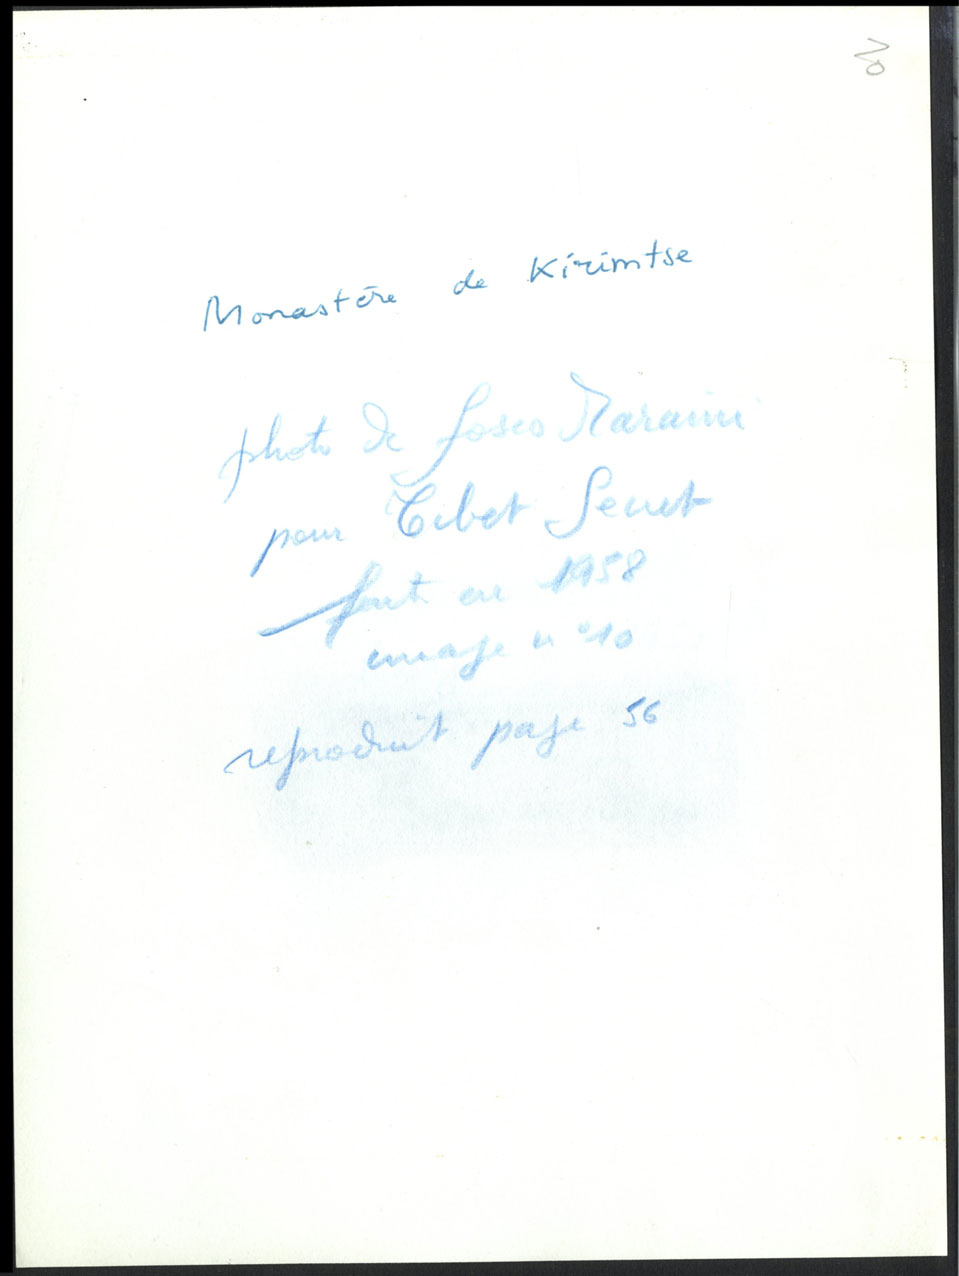 Monastère de Kirimtse
photo de fosco Maraini
pour Tibet Secret
fait en 1958
image n°10
reproduit page 56